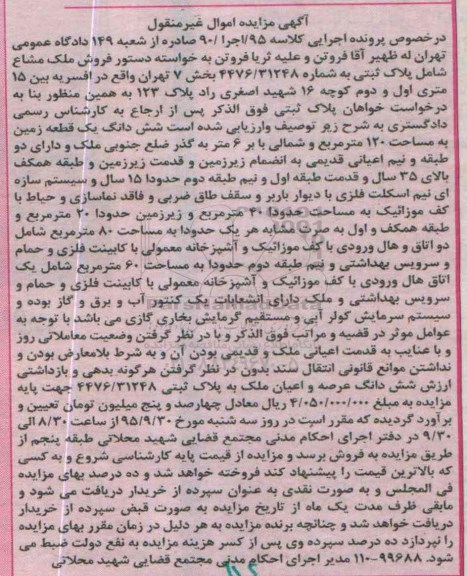 آگهی مزایده اموال غیرمنقول
درخصوص پرونده اجرایی کلاسه ۹۵/اجرا /۹۰ صادره از شعبه ۱۴۹ دادگاه عمومی
تهران له ظهیر آقا فروتن و علیه ثریا فروتن به خواسته دستور فروش ملک مشاع
شامل پلاک ثبتی به شماره ۴۴۷۶/۳۱۲۴۸ بخش ۷ تهران واقع در افسریه بین ۱۵
متری اول و دوم کوچه ۱۶ شهید اصغری راد پلاک ۱۲۳ به همین منظور بنا به
درخواست خواهان پلاک ثبتی فوق الذکر پس از ارجاع به کارشناس رسمی
دادگستری به شرح زیر توصیف وارزیابی شده است شش دانگ یک قطعه زمین
به مساحت ۱۲۰ مترمربع و شمالی با بر ۶ متر به گذر ضلع جنوبی ملک و دارای دو
طبقه و نیم اعیانی قدیمی به انضمام زیرزمین و قدمت زیرزمین و طبقه همکف
بالای ۳۵ سال و قدمت طبقه اول و نیم طبقه دوم حدودا ۱۵ سال و سیستم سازه
ای نیم اسکلت فلزی با دیوار باربر و سقف طاق ضربی و فاقد نماسازی و حیاط با
کف موزائیک به مساحت حدودا ۴۰ مترمربع و زیرزمین حدودا ۲۰ مترمربع و
طبقه همکف و اول به صورت مشابه هر یک حدودا به مساحت ۸۰ مترمربع شامل
دو اتاق و هال ورودی با کف موزائیک و آشپزخانه معمولی با کابینت فلزی و حمام
و سرویس بهداشتی و نیم طبقه دوم حدودا به مساحت ۶۰ مترمربع شامل یک
اتاق هال ورودی با کف موزائیک و آشپزخانه معمولی با کابینت فلزی و حمام و
سرویس بهداشتی و ملک دارای انشعابات یک کنتور آب و برق و گاز بوده و
سیستم سرمایش کولر آبی و مستقیم گرمایش بخاری گازی می باشد با توجه به
عوامل موثر در قضیه و مراتب فوق الذکر و با در نظر گرفتن وضعیت معاملاتی روز
و با عنایب به قدمت اعیانی ملک و قدیمی بودن آن و به شرط بلامعارض بودن و
نداشتن موانع قانونی انتقال سند بدون در نظر گرفتن هرگونه بدهی و بازداشتی
ارزش شش دانگ عرصه و اعیان ملک به پلاک ثبتی ۴۴۷۶/۳۱۲۴۸ جهت پایه
مزایده به مبلغ ۴/۰۵۰/۰۰۰/۰۰۰ ریال معادل چهارصد و پنج میلیون تومان تعیین و
برآورد گردیده که مقرر است در روز سه شنبه مورخ ۹۵/۹/۳۰ از ساعت ۸/۳۰ الی
۹/۳۰ در دفتر اجرای احکام مدنی مجتمع قضایی شهید محلاتی طبقه پنجم از
طریق مزایده به فروش برسد و مزایده از قیمت پایه کارشناسی شروع و به کسی
که بالاترین قیمت را پیشنهاد کند فروخته خواهد شد و ده درصد بهای مزایده
فی المجلس و به صورت نقدی به عنوان سپرده از خریدار دریافت می شود و
مابقی ظرف مدت یک ماه از تاریخ مزایده به صورت قبض سپرده از خریدار
دریافت خواهد شد و چنانچه برنده مزایده به هر دلیل در زمان مقرر بهای مزایده
را نپردازد ده درصد سپرده وی پس از کسر هزینه مزایده به نفع دولت ضبط می
شود. ۹۹۶۸۸-۱۱۰ مدیر اجرای احکام مدنی مجتمع قضائی شهید محلاتی